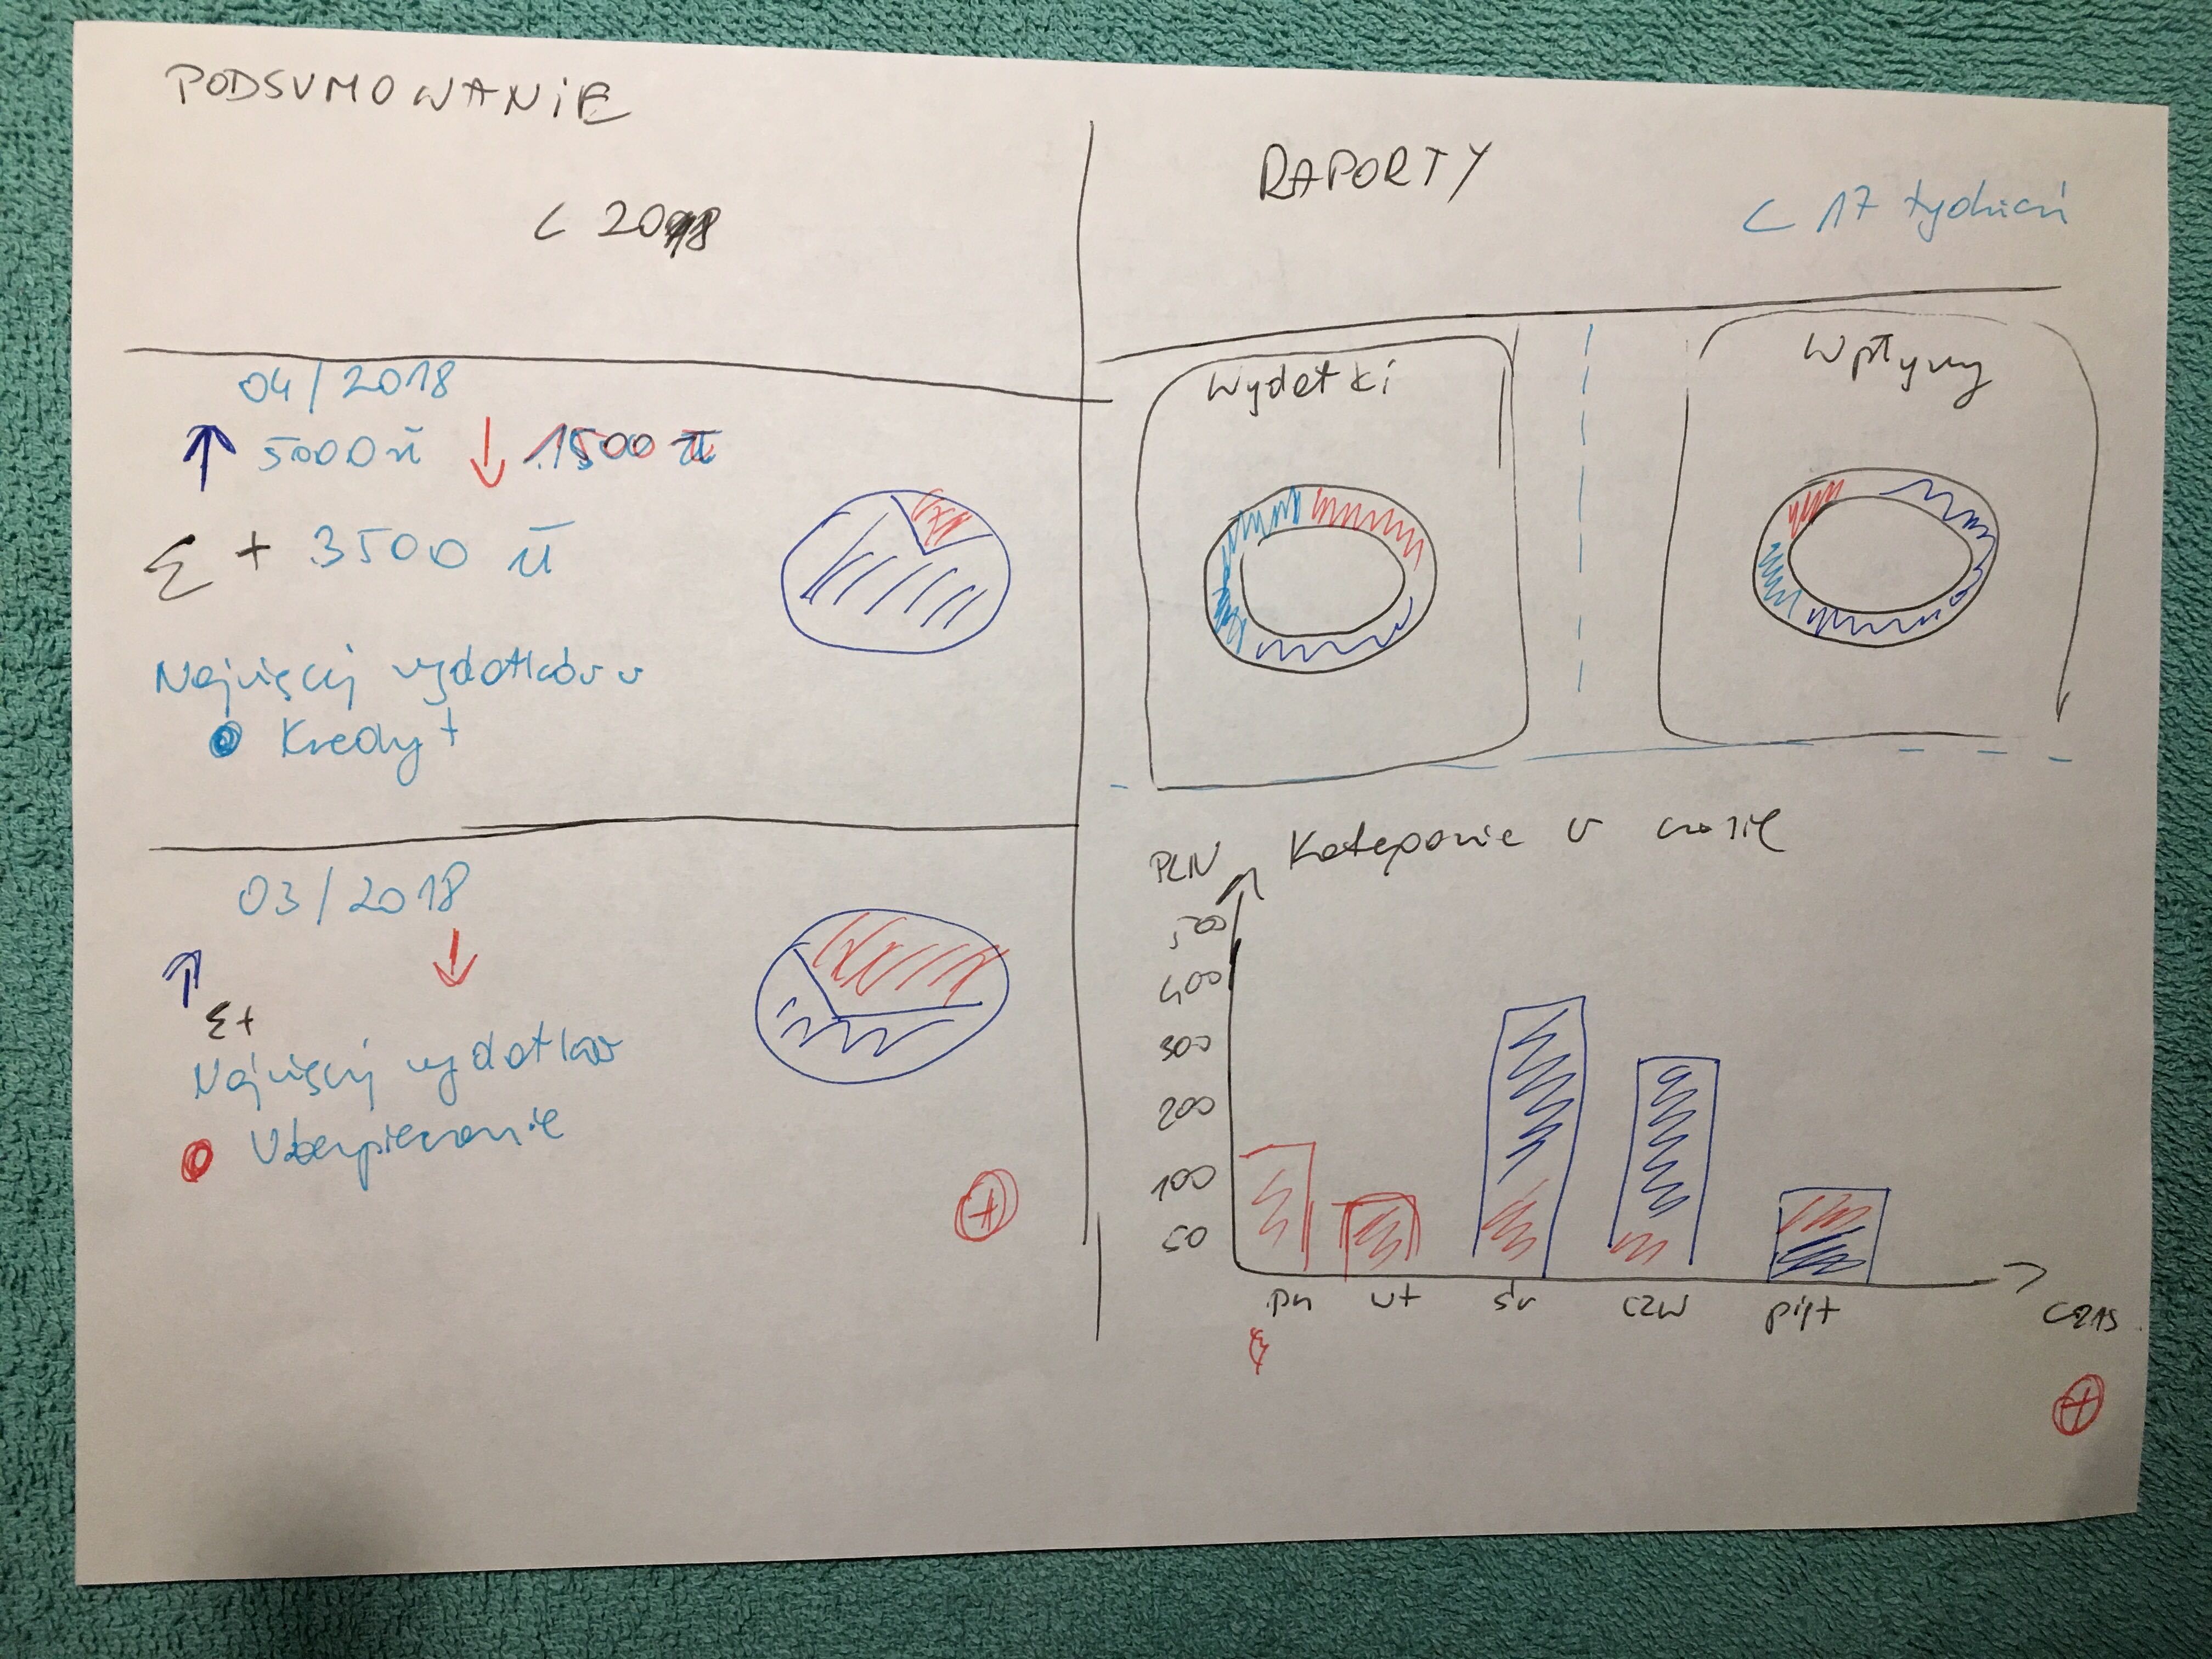 PODSUMOWANIE
< 2018
04/2018
↑ 5000 zł ↓ 1500 zł
Σ + 3500 zł
Najwięcej wydatków w
Kredyt
03/2018
↑ ↓
Σ+
Najwięcej wydatków
Ubezpieczenie
+
RAPORTY
< 17 tydzień
Wydatki
Wpływy
Kategorie w czasie
PLN
500
400
300
200
100
50
pn wt śr czw piąt
czas
+